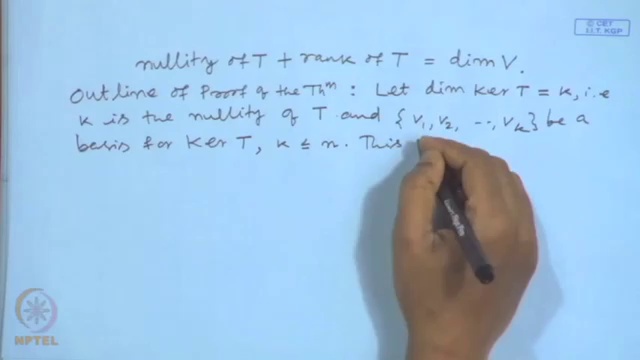 © CET
I.I.T. KGP
nullity of T + rank of T = dim V.
Outline of Proof of the Thm : Let dim Ker T = k, i.e
k is the nullity of T and {v1, v2, ..., vk} be a
basis for Ker T, k ≤ n. This
NPTEL